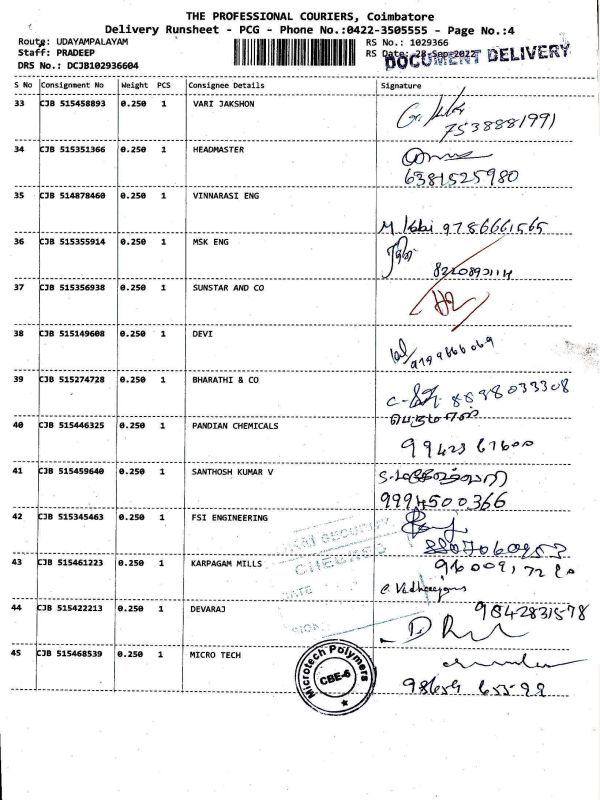 THE PROFESSIONAL COURIERS, Coimbatore
Delivery Runsheet - PCG - Phone No.:0422-3505555 - Page No.:4
Route: UDAYAMPALAYAM RS No.: 1029366
Staff: PRADEEP RS Date: 28-Sep-2022
DOCUMENT DELIVERY
DRS No.: DCJB102936604
S No Consignment No Weight PCS Consignee Details Signature
33 CJB 515458893 0.250 1 VARI JAKSHON
7538881991
34 CJB 515351366 0.250 1 HEADMASTER
6381525980
35 CJB 514878460 0.250 1 VINNARASI ENG
9786661565
36 CJB 515355914 0.250 1 MSK ENG
37 CJB 515356938 0.250 1 SUNSTAR AND CO
38 CJB 515149608 0.250 1 DEVI
39 CJB 515274728 0.250 1 BHARATHI & CO
8898033308
40 CJB 515446325 0.250 1 PANDIAN CHEMICALS
99423 67600
41 CJB 515459640 0.250 1 SANTHOSH KUMAR V
9994500366
42 CJB 515345463 0.250 1 FSI ENGINEERING
SECURITY
CHECKED
43 CJB 515461223 0.250 1 KARPAGAM MILLS
DATE
44 CJB 515422213 0.250 1 DEVARAJ
9842831578
45 CJB 515468539 0.250 1 MICRO TECH
Microtech Polymers
CBE-6